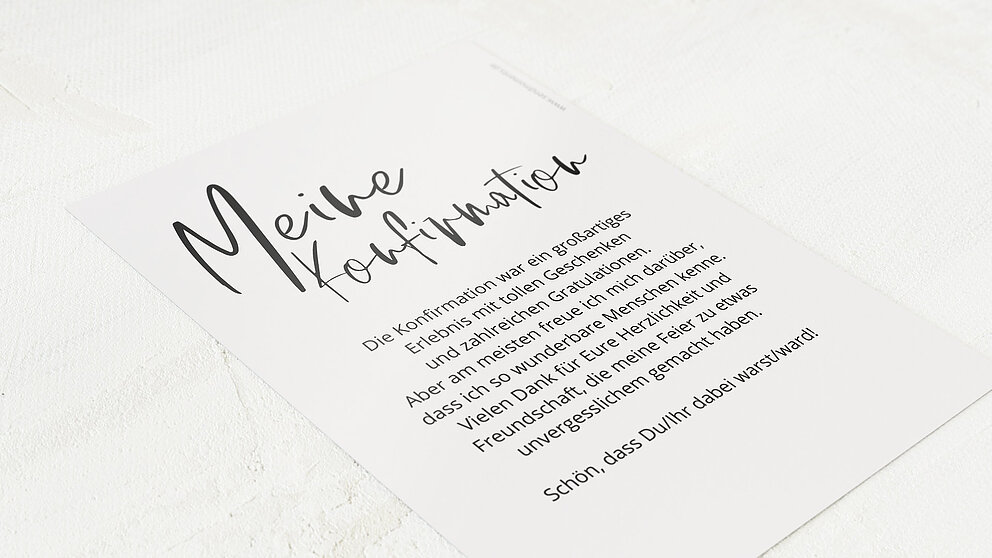 Meine
Konfirmation
Die Konfirmation war ein großartiges
Erlebnis mit tollen Geschenken
und zahlreichen Gratulationen.
Aber am meisten freue ich mich darüber,
dass ich so wunderbare Menschen kenne.
Vielen Dank für Eure Herzlichkeit und
Freundschaft, die meine Feier zu etwas
unvergesslichem gemacht haben.
Schön, dass Du/Ihr dabei warst/ward!